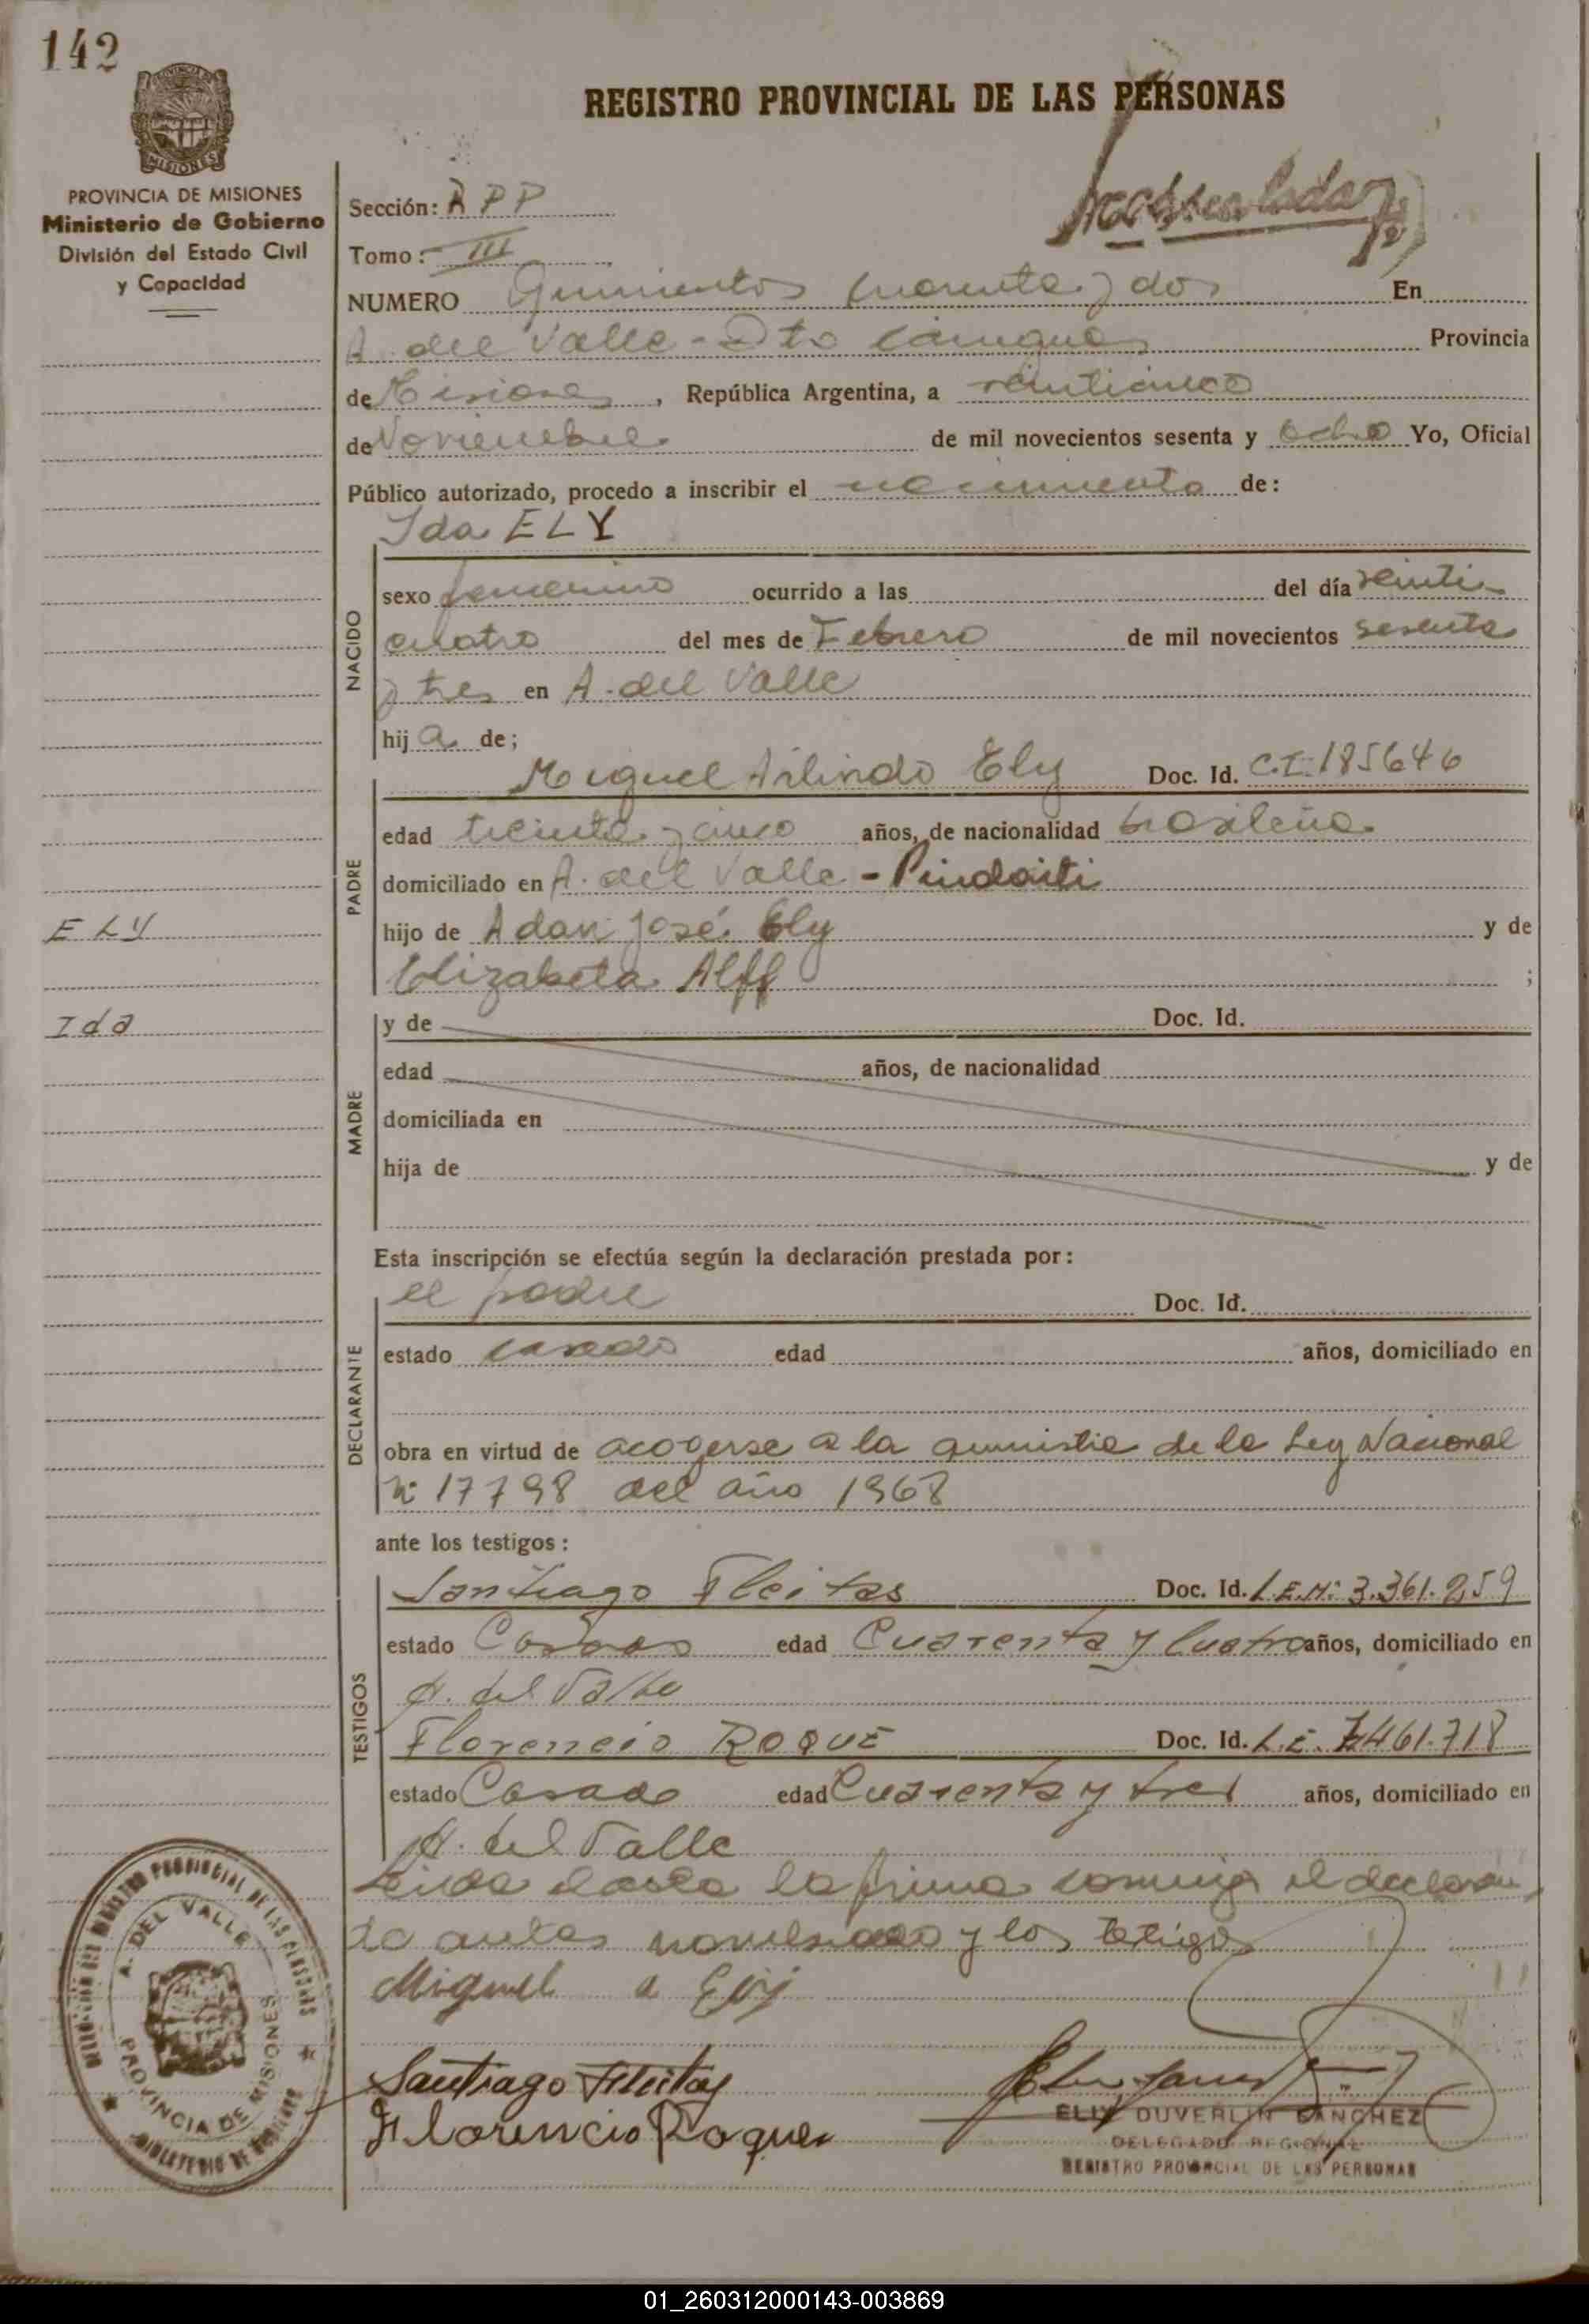 142
REGISTRO PROVINCIAL DE LAS PERSONAS
MISIONES
PROVINCIA DE MISIONES
Ministerio de Gobierno
División del Estado Civil
y Capacidad
Sección: A P P
Tomo: III
NUMERO Quinientos cuarenta y dos En
A. del Valle - Dto Cainguas Provincia
de Misiones, República Argentina, a veinticinco
de Noviembre de mil novecientos sesenta y ocho Yo, Oficial
Público autorizado, procedo a inscribir el nacimiento de:
Ida ELY
NACIDO
sexo femenino ocurrido a las del día veinti
cuatro del mes de Febrero de mil novecientos sesenta
y tres en A. del Valle
hija de;
PADRE
Miguel Arlindo Ely Doc. Id. C.I. 185646
edad treinta y cinco años, de nacionalidad brasileña
domiciliado en A. del Valle - Pindaiti
hijo de Adan José Ely y de
Elizabeta Alff ;
ELY
Ida
MADRE
y de Doc. Id.
edad años, de nacionalidad
domiciliada en
hija de y de
Esta inscripción se efectúa según la declaración prestada por:
DECLARANTE
el padre Doc. Id.
estado casado edad años, domiciliado en
obra en virtud de acogerse a la amnistia de la Ley Nacional
Nº 17798 del año 1968
ante los testigos:
TESTIGOS
Santiago Fleitas Doc. Id. L.E.Nº 3.361.259
estado Casado edad Cuarenta y Cuatro años, domiciliado en
A. del Valle
Florencio ROQUE Doc. Id. L.E. 7.461.718
estado Casado edad Cuarenta y tres años, domiciliado en
A. del Valle
Leida el acta la firma conmigo el declaran
te antes nombrado y los testigos
Miguel a Ely
Santiago Fleitas
Florencio Roque
ELIX DUVERLIN SANCHEZ
DELEGADO REGIONAL
REGISTRO PROVINCIAL DE LAS PERSONAS
REGISTRO PROVINCIAL DE LAS PERSONAS
A. DEL VALLE
PROVINCIA DE MISIONES
MINISTERIO DE GOBIERNO
01_260312000143-003869